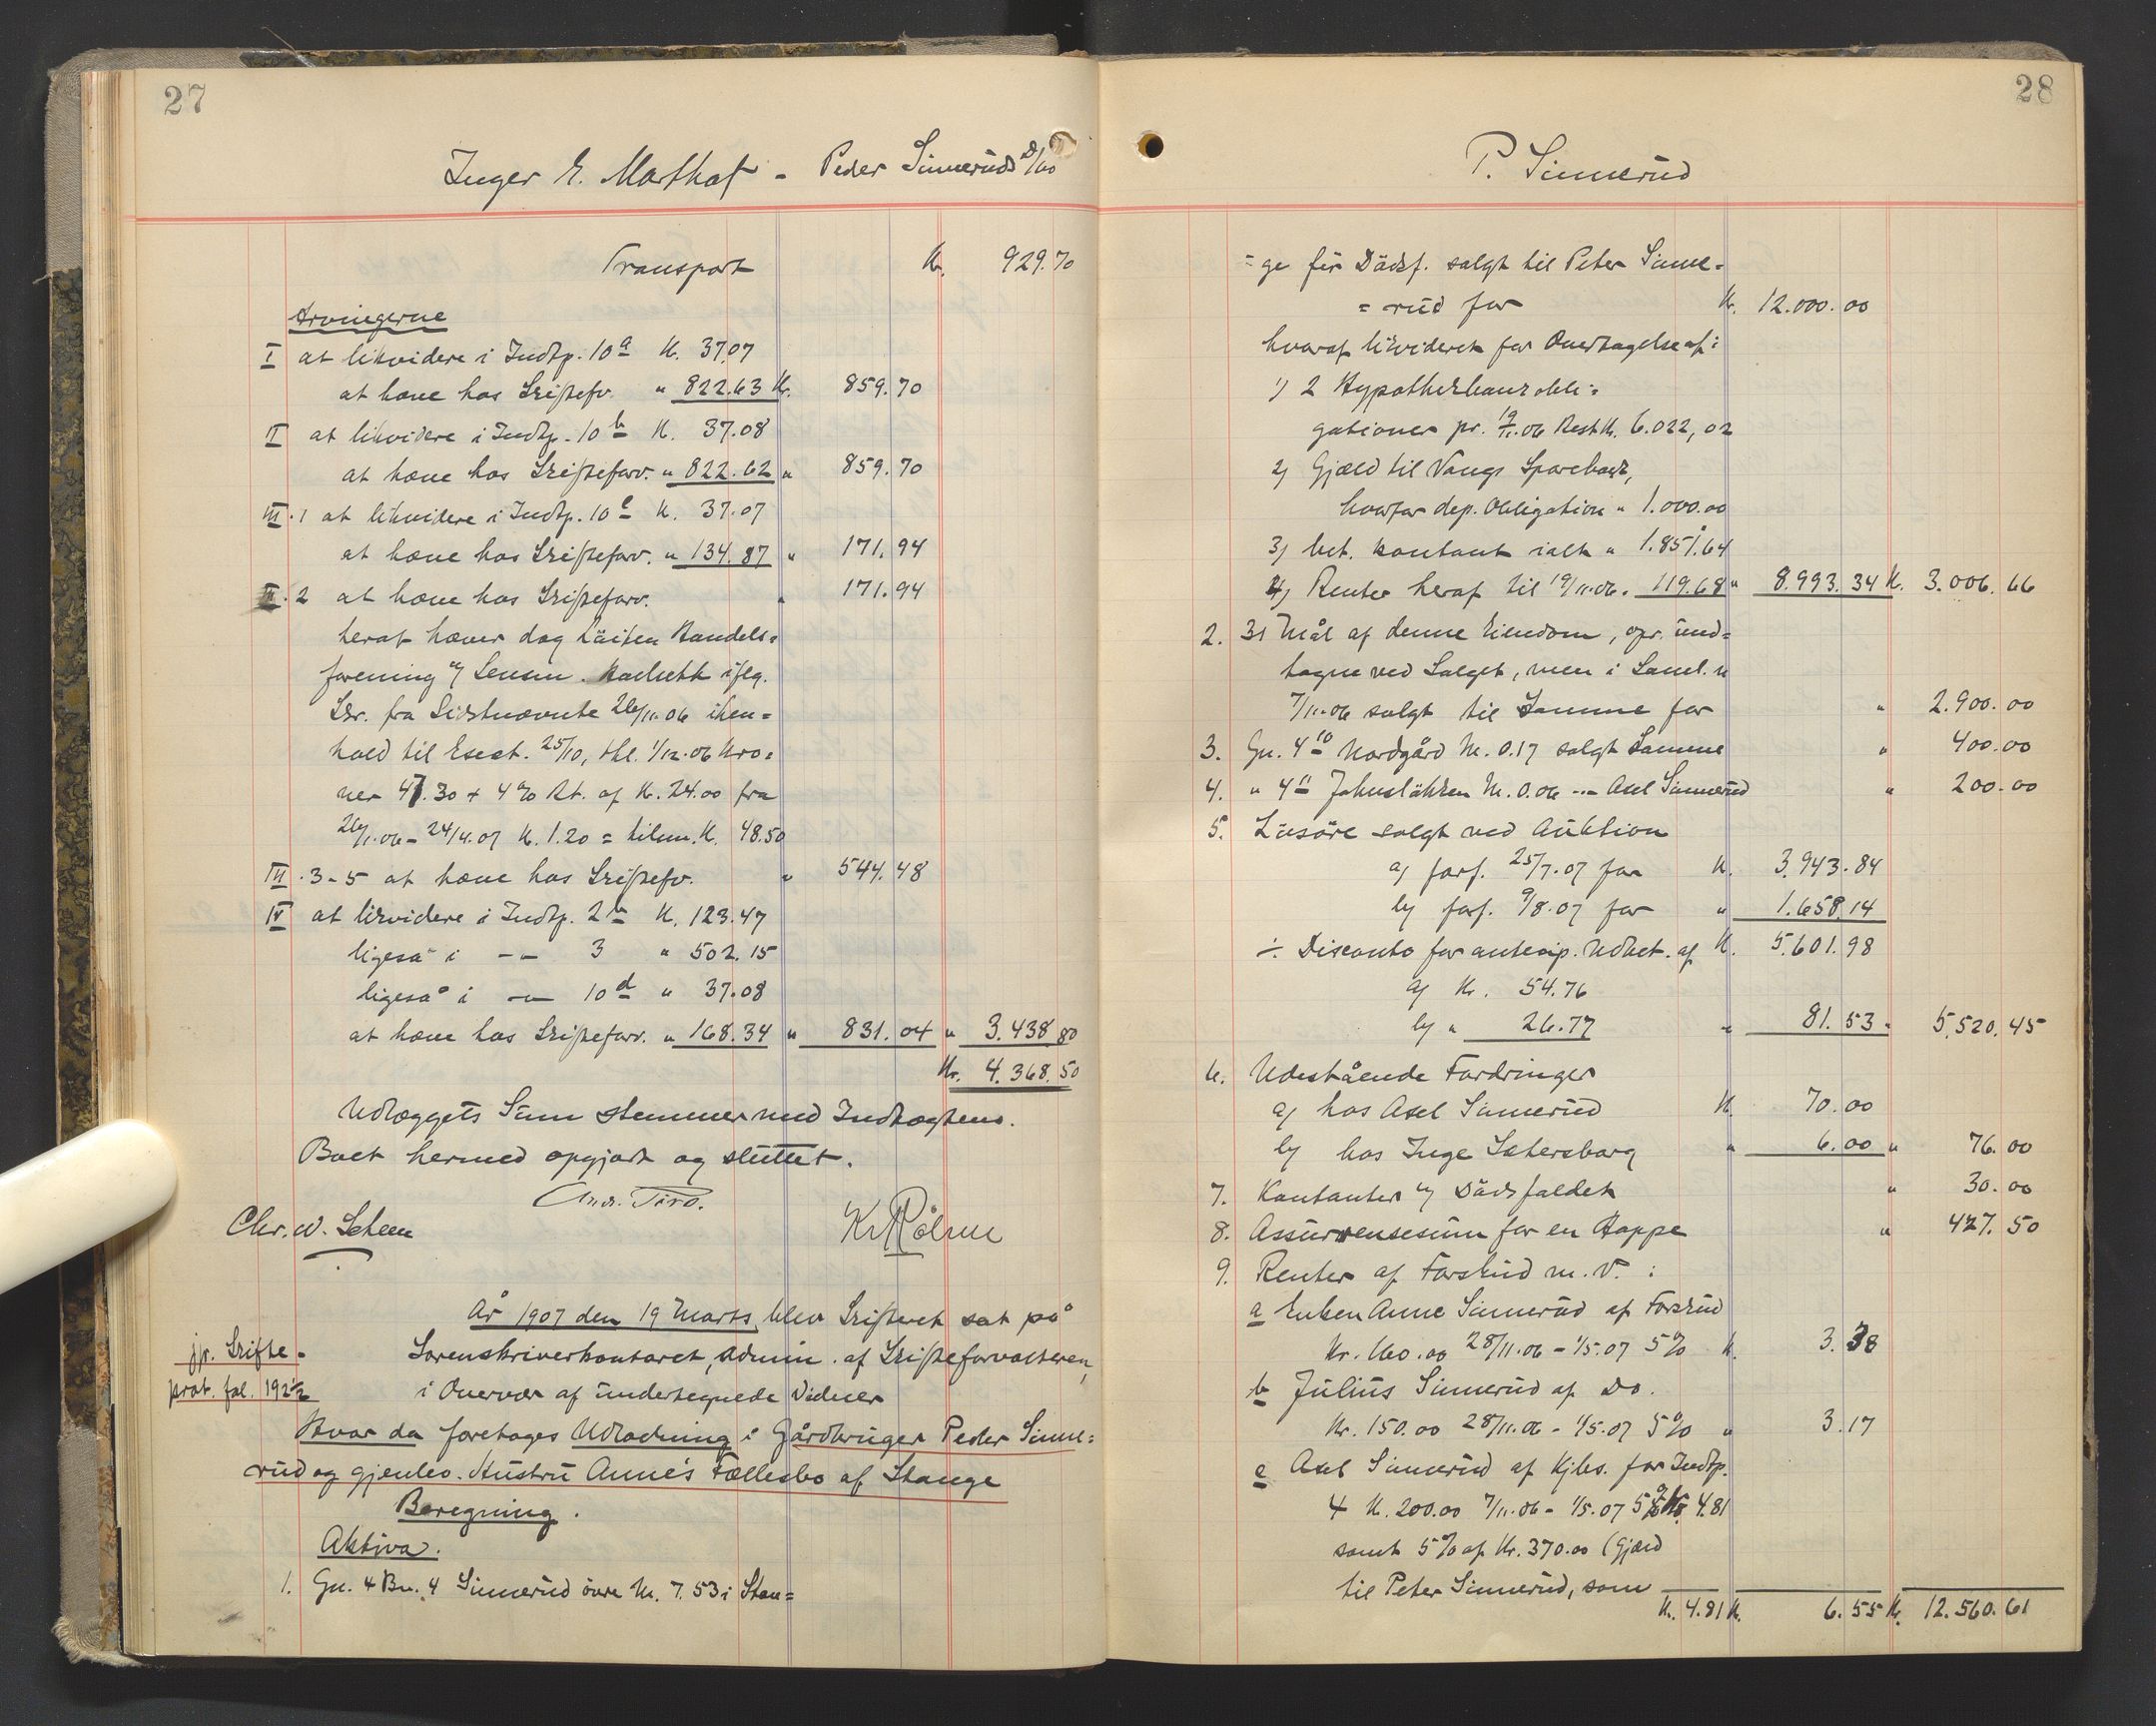 27
Inger E. Marthaf - Peder Sinneruds D/bo
Transport Kr. 929.70
Arvingerne
I at likvidere i Indtp. 10a K. 37,07
at hæve hos Skiftefv. " 822.63 Kr. 859.70
II at likvidere i Indtp. 10b K. 37.08
at hæve hos Skiftefarv. " 822.62 " 859.70
III.1 at likvidere i Indtp. 10c K. 37.07
at hæve hos Skiftefarv. " 134.87 " 171.94
III.2 at hæve hos Skiftefarv. " 171.94
heraf hæver dog Løiten Handels=
forening v/ Lensm. iflg.
Skr. fra Sidstnævnte 26/11.06 i hen=
hold til Exect. 25/10, thl. 1/12.06 Kro=
ner 47.30 + 4% Rt. af K. 24.00 fra
26/1.06 - 24/4.07 K. 1.20 = tilsm. K. 48.50
III.3-5 at hæve hos Skiftefv. " 544.48
IV at likvidere i Indtp. 2b K. 123.47
ligeså i -"- 3 " 502.15
ligeså i -"- 10d " 37.08
at hæve hos Skiftefarv. " 168.34 " 831.04 " 3.438.80
Kr. 4.368.50
Udlæggets Sum stemmer med Indtægtens.
Boet hermed opgjort og sluttet.
Chr. W. Scheen
År 1907 den 19 Marts, blev Skifteret sat på
Sorenskriverkontoret, admin. af Skifteforvalteren,
i Overvær af undertegnede Vidner
jfr. Skifte-
prot. fol. 192 1/2
Hvor da foretoges Udlodning i Gårdbruger Peder Sinne=
rud og gjenlev. Hustru Anne's Fællesbo af Stange
Beregning.
Aktiva.
1. Gn. 4 Bn. 4 Sinnerud øvre M. 7.53 i Stan=
28
P. Sinnerud
=ge før Dødsf. solgt til Peter Sinne=
=rud for K. 12.000.00
hvoraf likvideret for Overtagelse af:
1) 2 Hypothekbankobli=
gationer pr. 19/11.06 Rest K. 6.022,02
2) Gjæld til Vangs Sparebank,
hvorfor dep. Obligation " 1.000.00
3) bet. kontant ialt " 1.851.64
4) Renter heraf til 19/11.06. 119.68 " 8.993.34 K. 3.006.66
2. 31 Mål af denne Eiendom, opr. und=
tagne ved Salget, men i Saml. u
7/11.06 solgt til Samme for " 2.900.00
3. Gn. 4 10 Nordgård M. 0.17 solgt Samme " 400.00
4. " 4 11 Johnsløkken M. 0.06 -"- Axel Sinnerud " 200.00
5. Løsøre solgt ved Auktion
a) forf. 25/7.07 for K. 3.943.84
b) forf. 9/8.07 for " 1.658.14
÷ Disconto for antecip. Udbet. af K. 5.601.98
a) Kr. 54.76
b) " 26.77 " 81.53 " 5.520.45
6. Udestående Fordringer
a) hos Axel Sinnerud K. 70.00
b) hos Inge Sætersborg " 6.00 " 76.00
7. Kontanter v/ Dødsfaldet " 30.00
8. Assurrensesum for en Hoppe " 427.50
9. Renter af Forskud m. v. :
a Enken Anne Sinnerud af Forskud
Kr. 160.00 28/11.06 - 1/5.07 5% K. 3.38
b Julius Sinnerud af Do.
Kr. 150.00 28/11.06 - 1/5.07 5% " 3.17
c Axel Sinnerud af Kjbs. for Indtp.
4 K. 200.00 7/11.06 - 1/5.07 5% Kr. 4.81
samt 5% af Kr. 370.00 (Gjæld
til Peter Sinnerud, som
K. 4.81 K. 6.55 K. 12.560.61